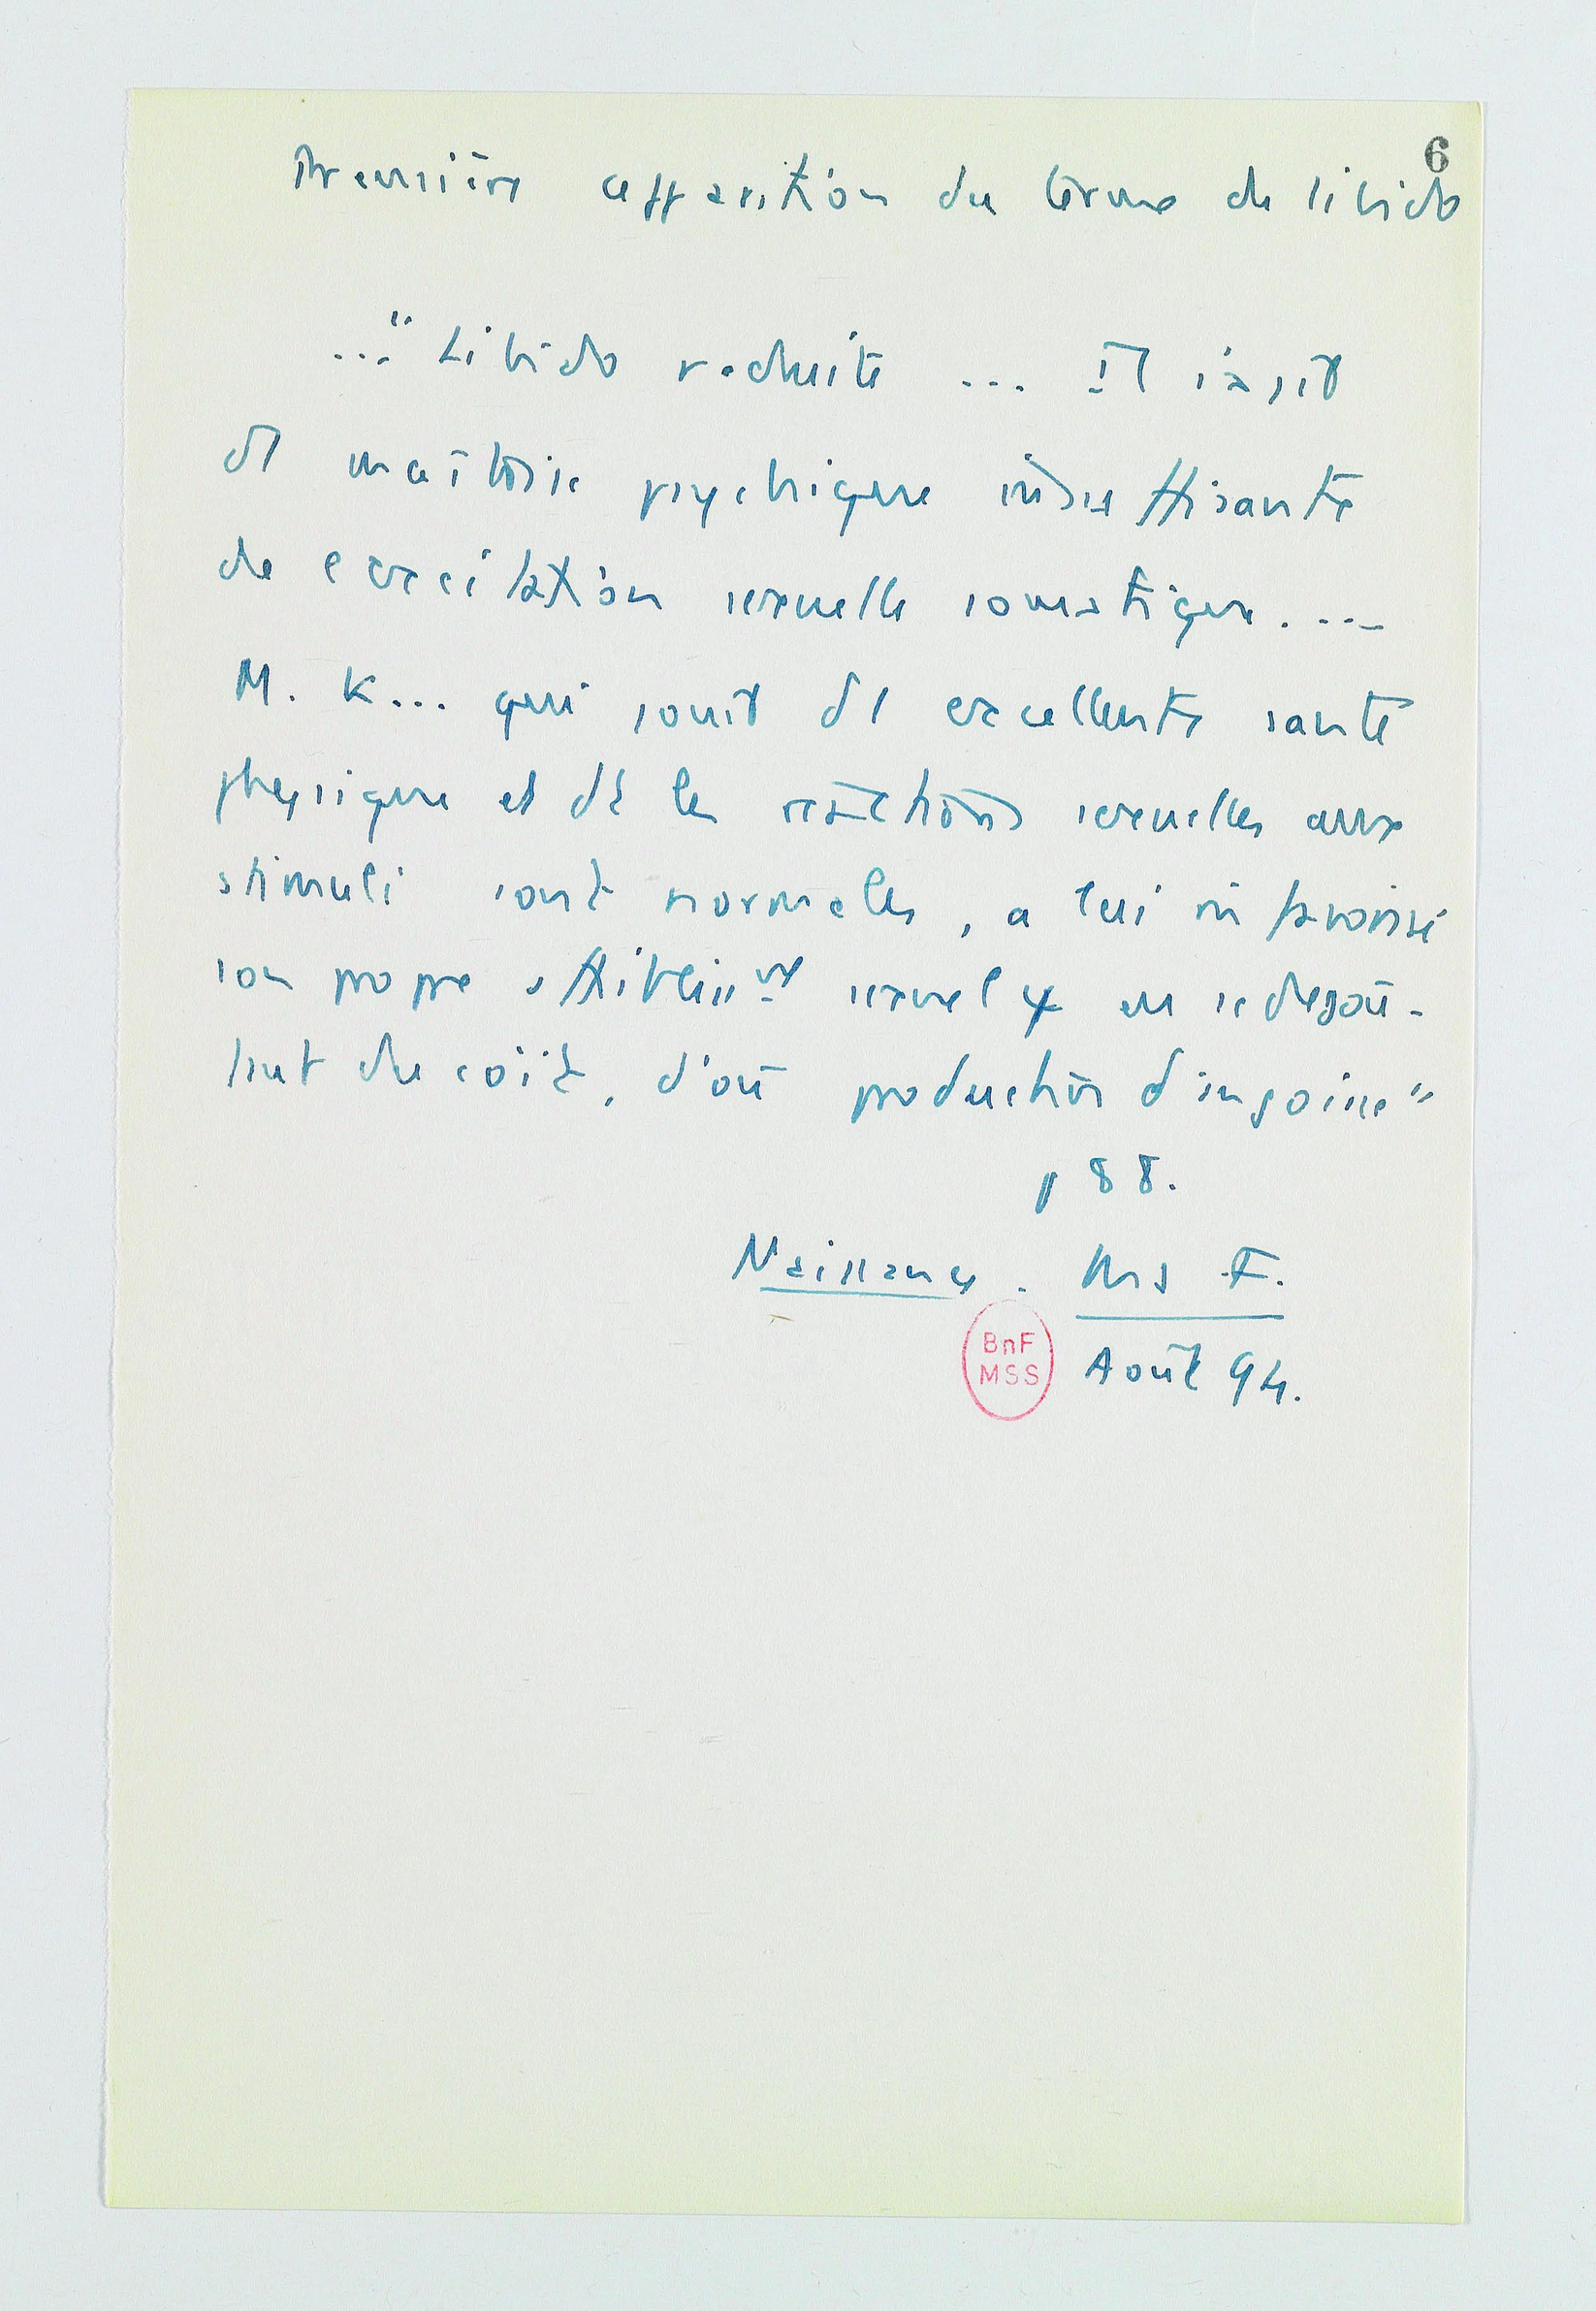 6
Première apparition du terme de libido
..." Libido réduite ... Il s'agit
d1 maîtrise psychique insuffisante
de l'excitation sexuelle somatique. ...
M. K... qui jouit d1 excellente santé
physique et dt les réactions sexuelles aux
stimuli sont normales, a lui m favorisé
son propre affaiblisst sexuel en se dégoû-
tant du coït, d'où production d'angoisse"
p 88.
Naissance. Ms F.
BnF
MSS
Août 94.